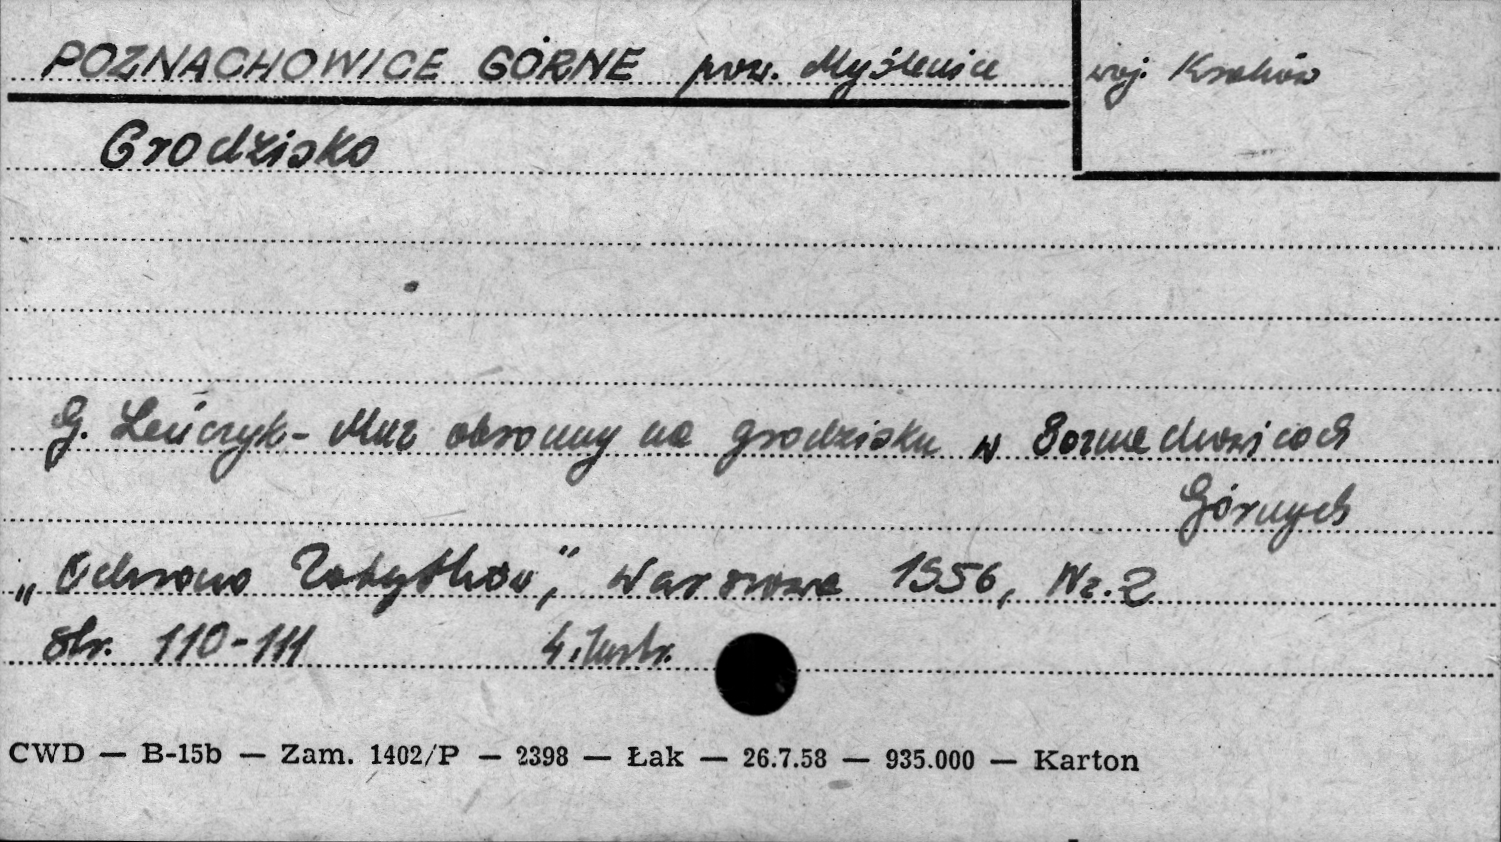 POZNACHOWICE GÓRNE pow. Myślenice
woj. Kraków
Grodzisko
G. Leńczyk - Mur obronny na grodzisku w Poznachowicach
Górnych
„Ochrona Zabytków”, Warszawa 1956, Nr. 2
Str. 110-111 4 ilustr.
CWD — B-15b — Zam. 1402/P — 2398 — Łak — 26.7.58 — 935.000 — Karton